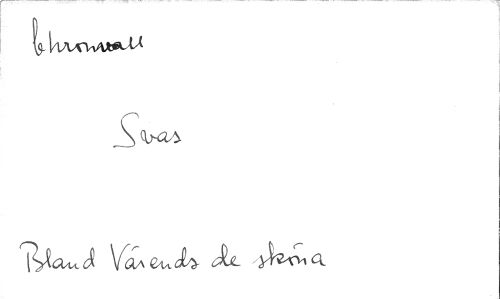 Chronwall
Svas
Bland Värends de sköna